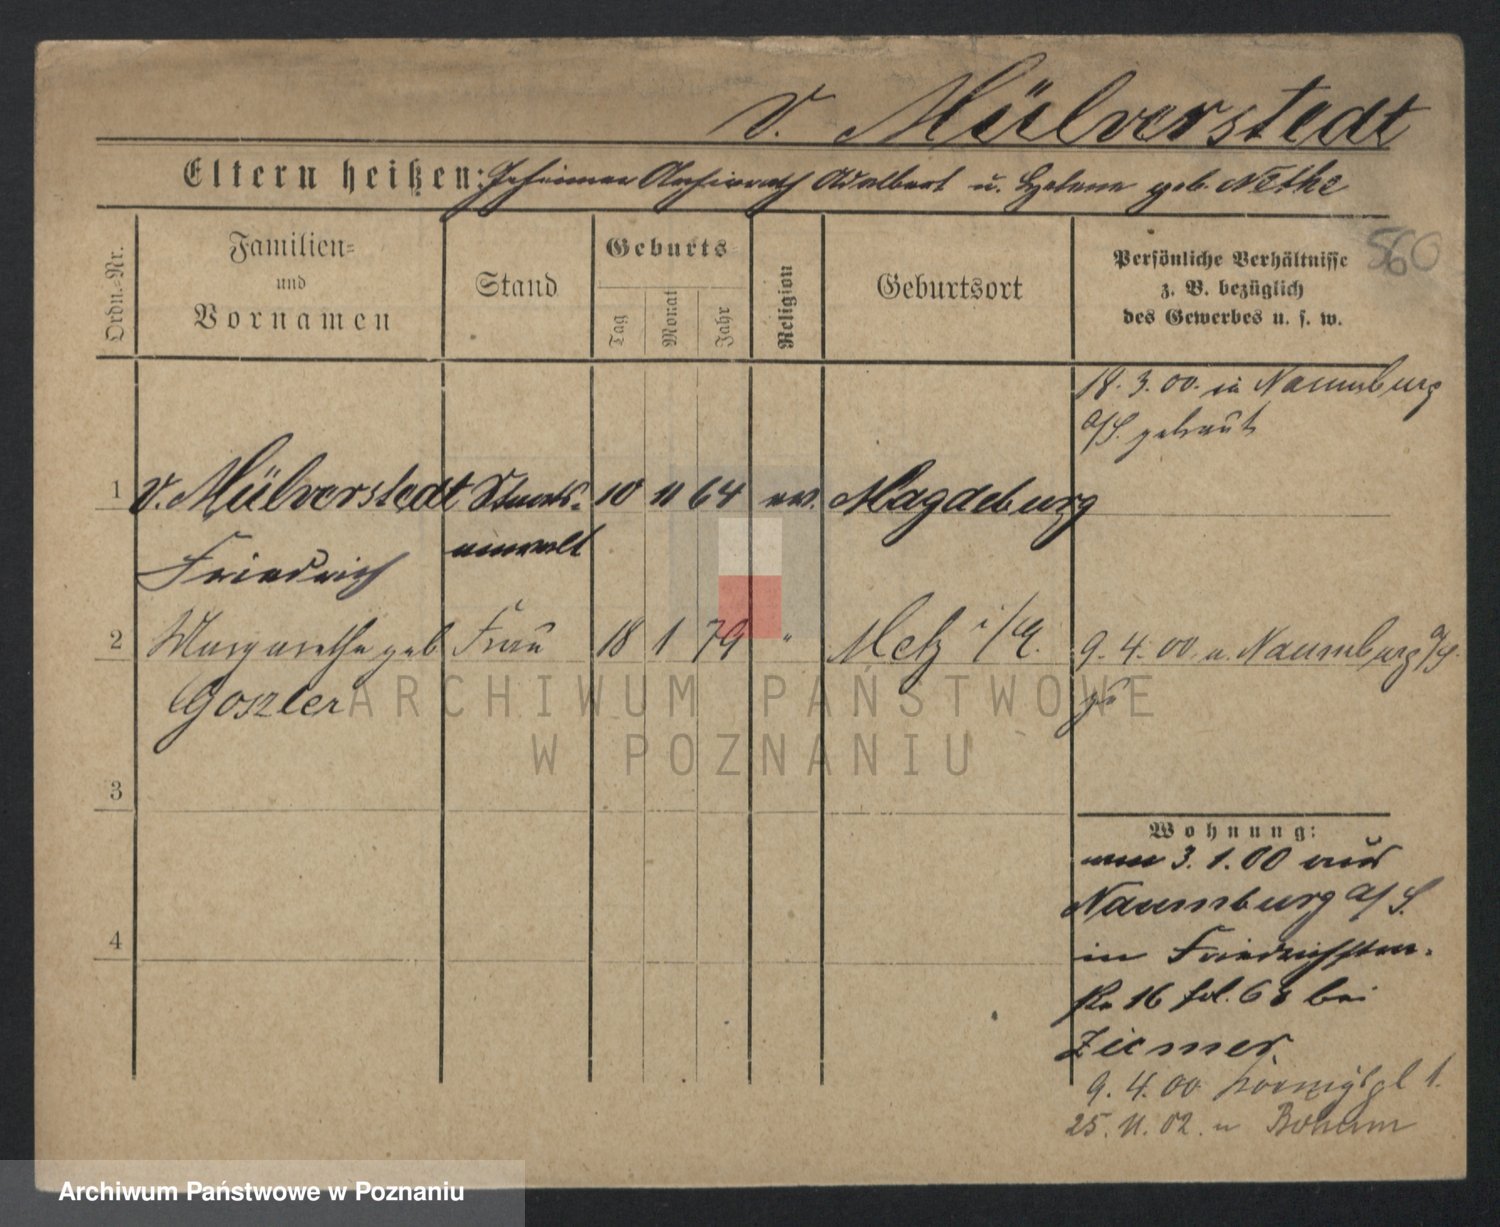 v. Mülverstedt
Eltern heißen: Geheimer Archivrath Adalbert u. Helene geb. Nethe
560
Ordn.-Nr.
Familien-
und
Vornamen
Stand
Geburts-
Tag
Monat
Jahr
Religion
Geburtsort
Persönliche Verhältnisse
z. B. bezüglich
des Gewerbes u. s. w.
18. 3. 00. in Naumburg
a/S. getraut
1 v. Mülverstedt Staats- 10 11 64 ev. Magdeburg
Friedrich anwalt
2 Margarethe geb Frau 18 1 79 " Metz i/
9. 4. 00. v. Naumburg a/S.
Goszler
zu
3
4
Wohnung:
am 3. 1. 00 aus
Naumburg a/S.
in Friedrichstr.
16 bei
Ziemer.
9. 4. 00 Königspl 1.
25. 11. 02. n Bochum
ARCHIWUM PAŃSTWOWE
W POZNANIU
Archiwum Państwowe w Poznaniu